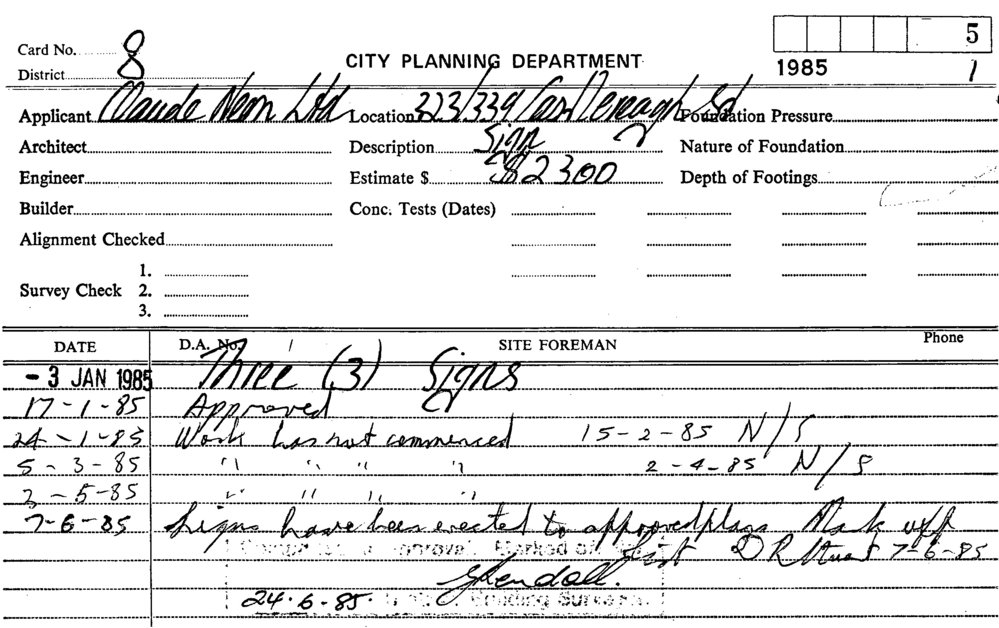 5
Card No. 8
CITY PLANNING DEPARTMENT
District
1985 1
Applicant Claude Neon Ltd Location 323/339 Castlereagh St Foundation Pressure
Architect Description Sign Nature of Foundation
Engineer Estimate $ $2300 Depth of Footings
Builder Conc. Tests (Dates)
Alignment Checked
1.
Survey Check 2.
3.
DATE D.A. No. SITE FOREMAN Phone
- 3 JAN 1985 Three (3) Signs
17-1-85 Approved
24-1-85 Work has not commenced 15-2-85 N/S
5-3-85 " " " " 2-4-85 N/S
2-5-85 " " " "
7-6-85 Signs have been erected to approved plans Mark off
list 7-6-85
Completed Approval Marked of
24.6.85 Building Surveyor